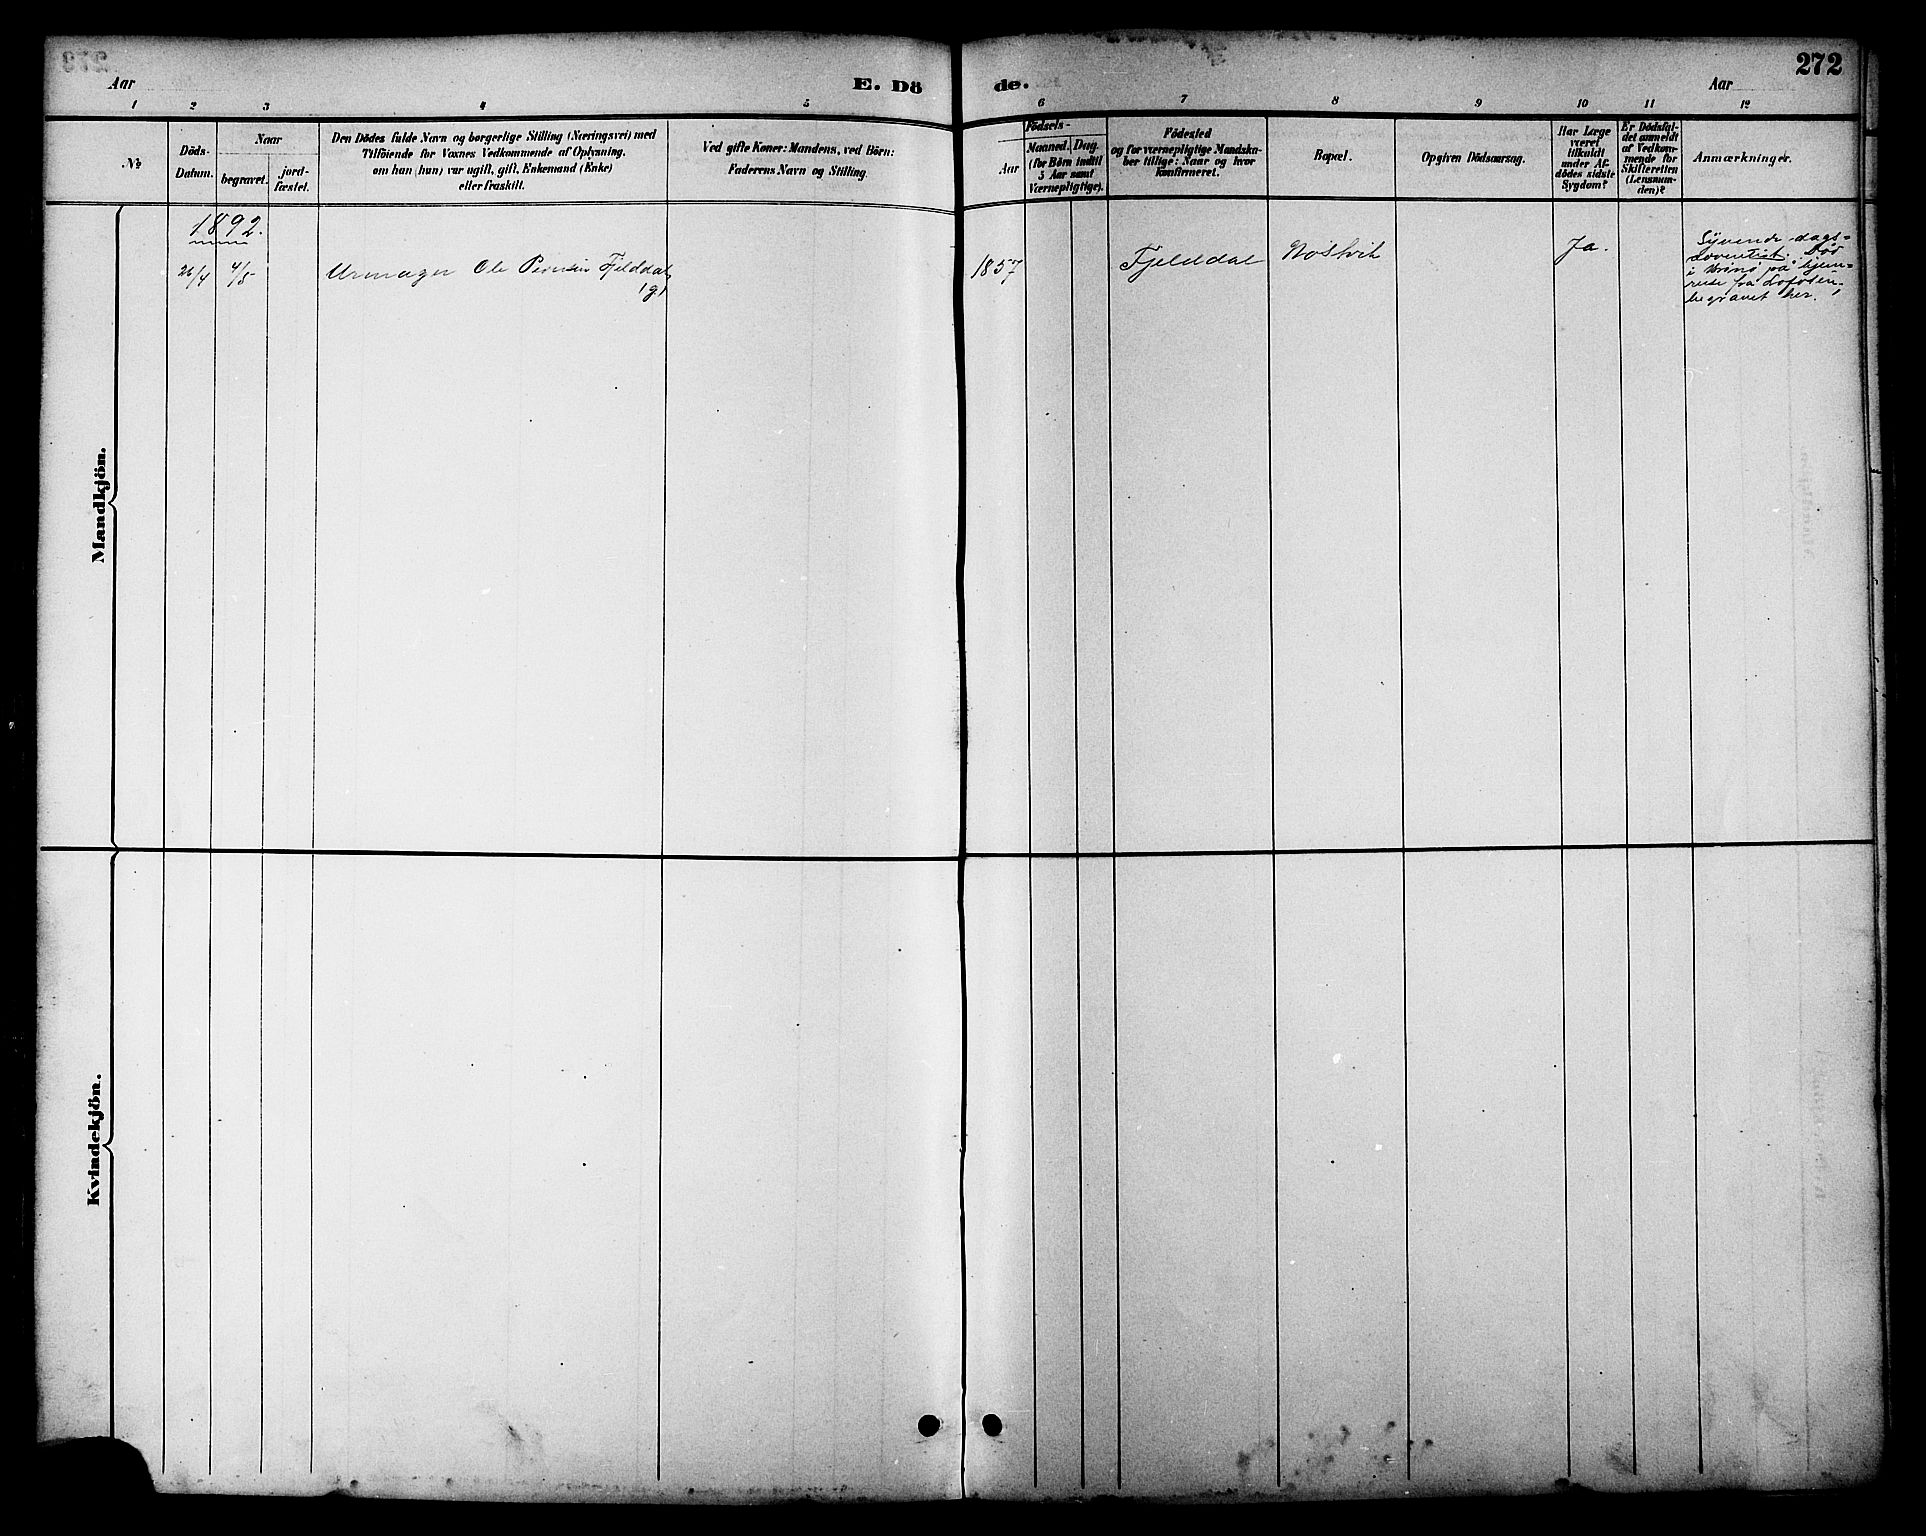 272
Aar
E. Dö
de.
Aar
1 2 3 4 5
6 7 8 9 10 11 12
No
Döds-
Datum.
Naar
begravet.
jord-
fæstet.
Den Dödes fulde Navn og borgerlige Stilling (Næringsvei) med
Tilföiende for Voxnes Vedkommende af Oplysning,
om han (hun) var ugift, gift, Enkemand (Enke)
eller fraskilt.
Ved gifte Koner: Mandens, ved Börn:
Faderens Navn og Stilling.
Födsels-
Aar
Maaned. Dag.
(for Börn indtil
5 Aar samt
Værnepligtige).
Födested
og for værnepligtige Mandska-
ber tillige: Naar og hvor
konfirmeret.
Bopæl.
Opgiven Dödsaarsag.
Har Læge
været
tilkaldt
under Af-
dödes sidste
Sygdom?
Er Dödsfal-
det anmeldt
af Vedkom-
mende for
Skifteretten
(Lensman-
den)?
Anmærkninger.
Mandkjön.
1892.
26/4 4/5 Urmager Ole Fjelddal
(g)
1857 Fjelddal Ja.
Syvende-dags-
Adventist. Död
i på hjem-
reise fra Lofoten
begravet her.
Kvindekjön.